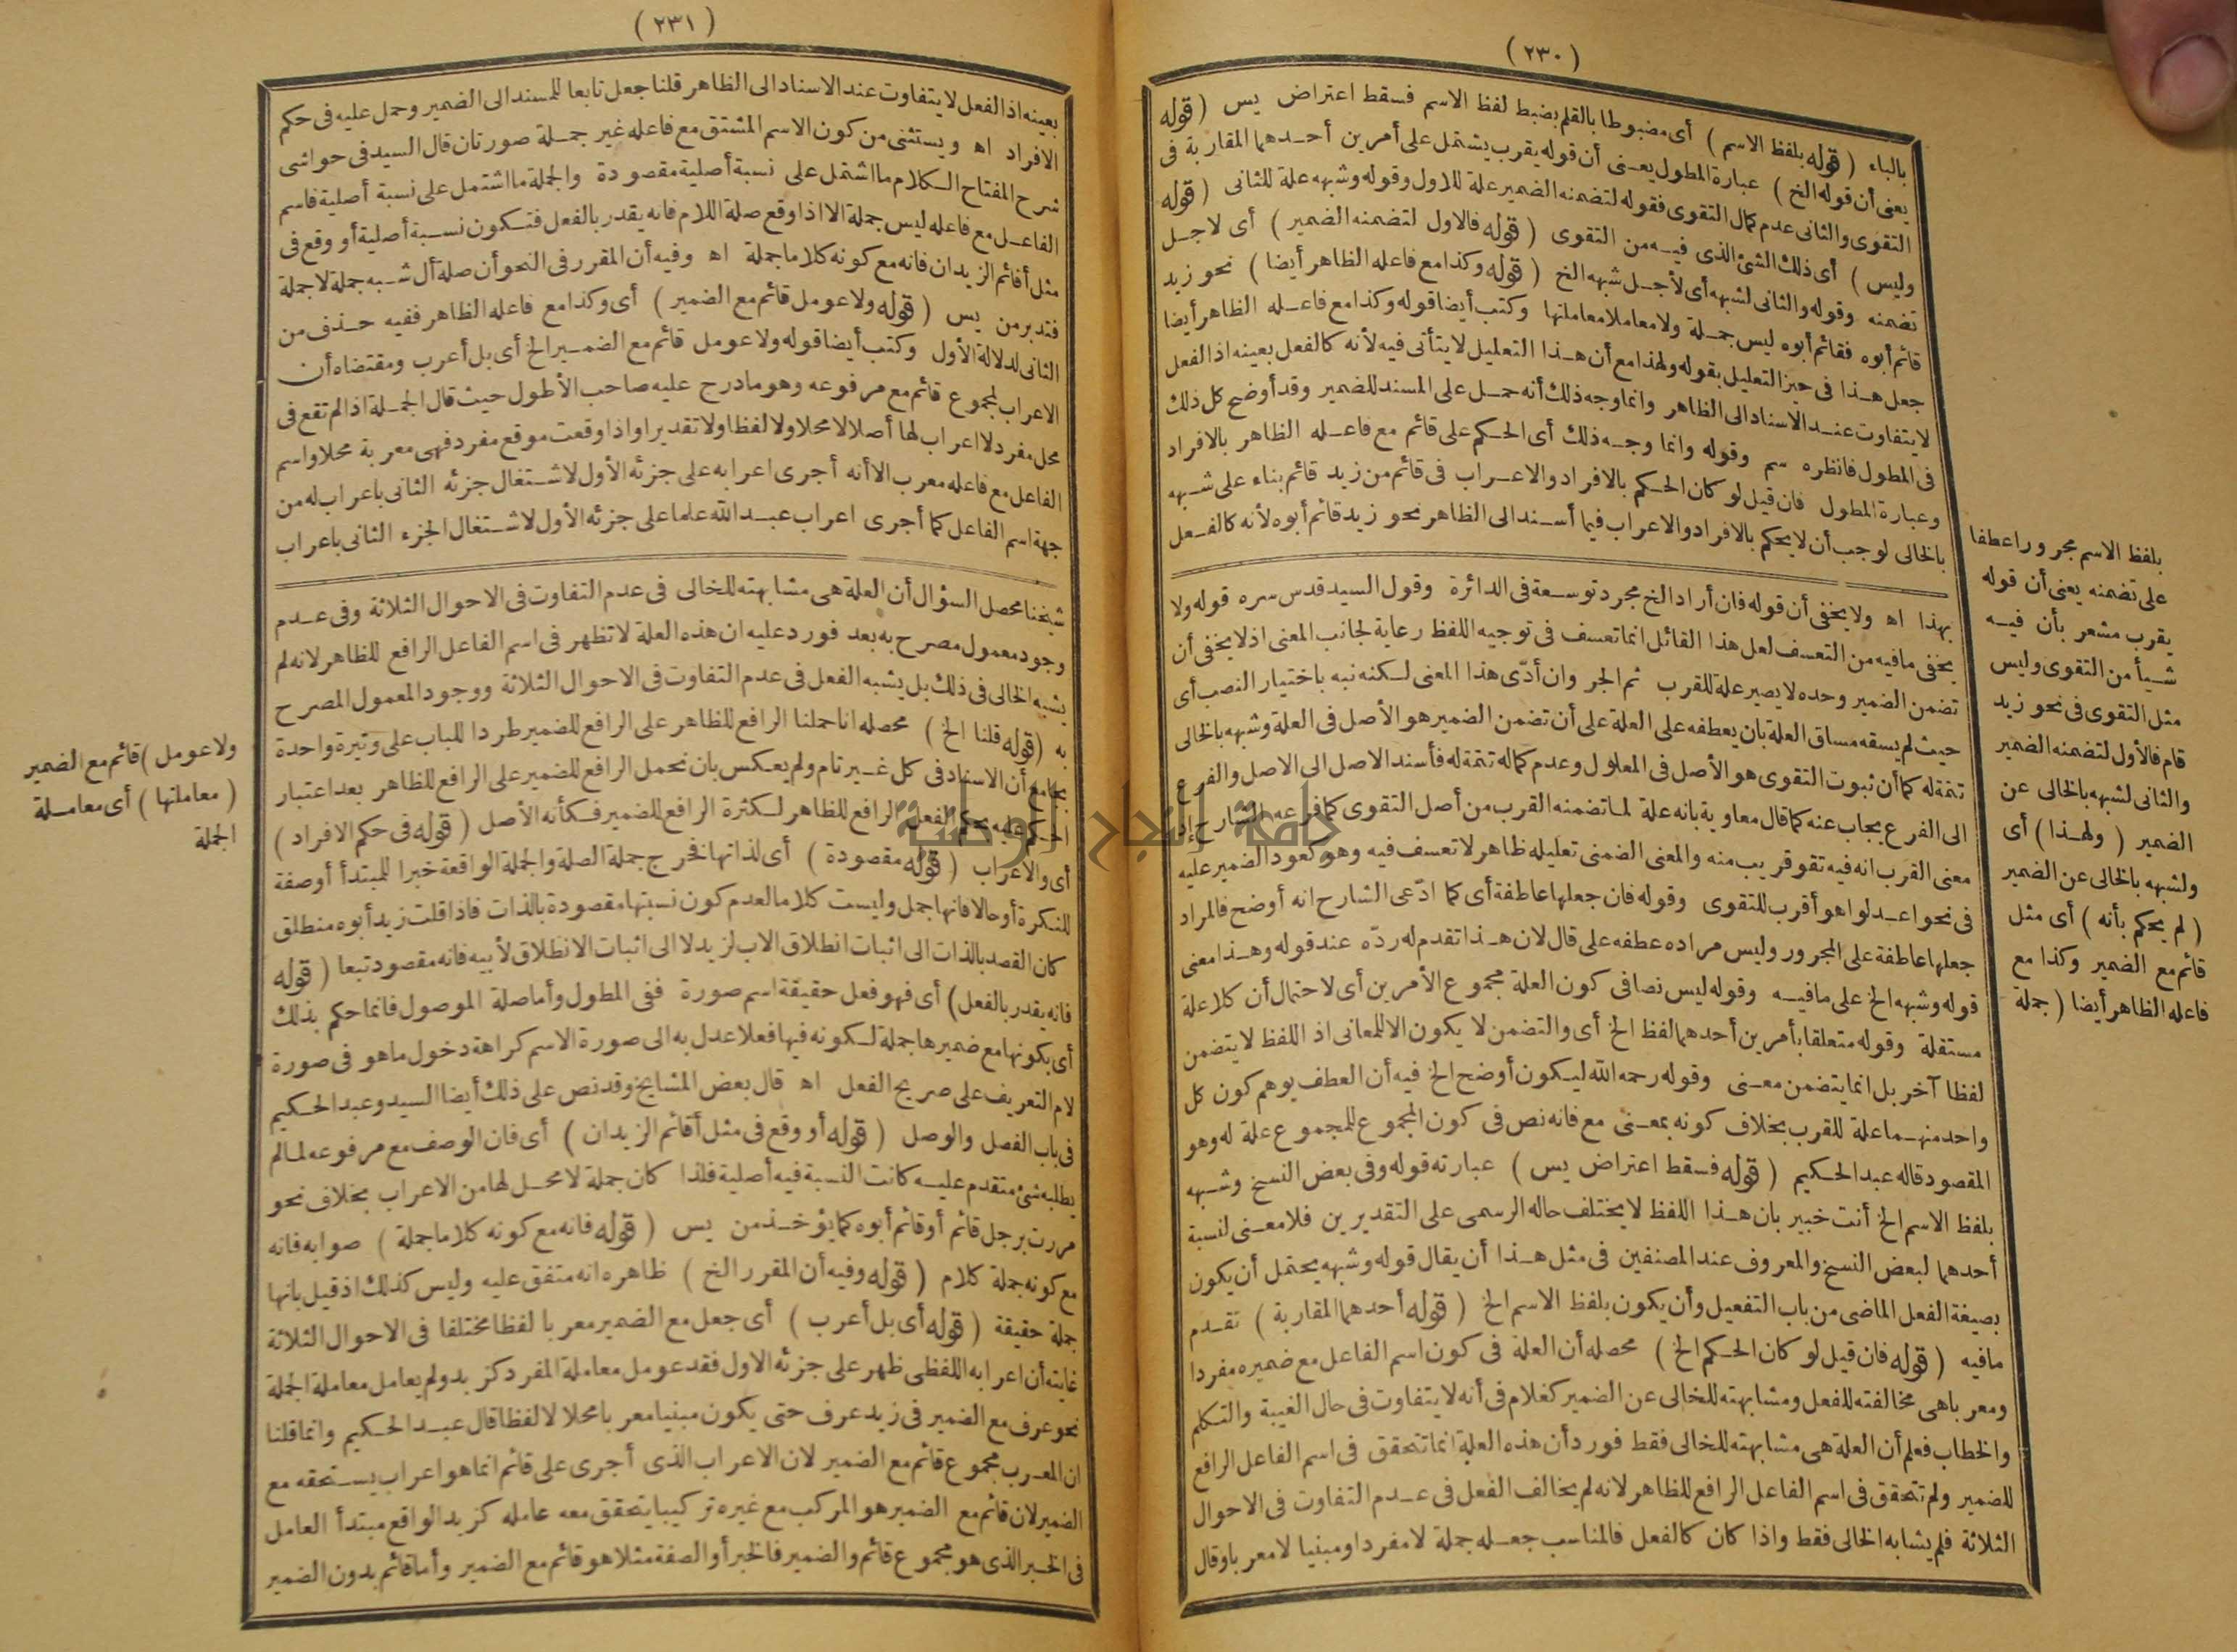 (٢٣٠)
بالباء (قوله بلفظ الاسم) أى مضبوطا بالقلم بضبط لفظ الاسم فسقط اعتراض يس (قوله
يعنى أن قوله الخ) عبارة المطول يعنى أن قوله يقرب يشتمل على أمرين أحدهما المقاربة فى
التقوى والثانى عدم كمال التقوى فقوله لتضمنه الضمير علة للاول وقوله وشبهه علة للثانى (قوله
وليس) أى ذلك الشئ الذى فيه من التقوى (قوله فالاول لتضمنه الضمير) أى لاجل
تضمنه وقوله والثانى لشبهه أى لأجل شبهه الخ (قوله وكذا مع فاعله الظاهر أيضا) نحو زيد
قائم أبوه فقائم أبوه ليس جملة ولا معاملا معاملتها وكتب أيضا قوله وكذا مع فاعله الظاهر أيضا
جعل هذا فى حيز التعليل بقوله ولهذا مع أن هذا التعليل لا يتأتى فيه لأنه كالفعل بعينه اذ الفعل
لا يتفاوت عند الاسناد الى الظاهر وانما وجه ذلك أنه حمل على المسند للضمير وقد أوضح كل ذلك
فى المطول فانظره سم وقوله وانما وجه ذلك أى الحكم على قائم مع فاعله الظاهر بالافراد
وعبارة المطول فان قيل لو كان الحكم بالافراد والاعراب فى قائم من زيد قائم بناء على شبهه
بالخالى لوجب أن لا يحكم بالافراد والاعراب فيما أسند الى الظاهر نحو زيد قائم أبوه لأنه كالفعل
بهذا اه ولا يخفى أن قوله فان أراد الخ مجرد توسعة فى الدائرة وقول السيد قدس سره قوله ولا
يخفى ما فيه من التعسف لعل هذا القائل انما تعسف فى توجيه اللفظ رعاية لجانب المعنى اذ لا يخفى أن
تضمن الضمير وحده لا يصير علة للقرب ثم الجر وان أدّى هذا المعنى لكنه نبه باختيار النصب أى
حيث لم يسقه مساق العلة بان يعطفه على العلة على أن تضمن الضمير هو الأصل فى العلة وشبهه بالخالى
تتمة له كما أن ثبوت التقوى هو الأصل فى المعلول وعدم كماله تتمة له فأسند الاصل الى الاصل والفرع
الى الفرع يجاب عنه كما قال معاوية بانه علة لما تضمنه القرب من أصل التقوى كما فرعه الشارح اذ
معنى القرب انه فيه تقو قريب منه والمعنى الضمنى تعليله ظاهر لا تعسف فيه وهو كعود الضمير عليه
فى نحو اعدلوا هو أقرب للتقوى وقوله فان جعلها عاطفة أى كما ادّعى الشارح انه أوضح فالمراد
جعلها عاطفة على المجرور وليس مراده عطفه على قال لان هذا تقدم له ردّه عند قوله وهذا معنى
قوله وشبهه الخ على ما فيه وقوله ليس نصا فى كون العلة مجموع الأمرين أى لاحتمال أن كلا علة
مستقلة وقوله متعلقا بأمرين أحدهما لفظ الخ أى والتضمن لا يكون الا للمعانى اذ اللفظ لا يتضمن
لفظا آخر بل انما يتضمن معنى وقوله رحمه الله ليكون أوضح الخ فيه أن العطف يوهم كون كل
واحد منهما علة للقرب بخلاف كونه بمعنى مع فانه نص فى كون المجموع للمجموع علة له وهو
المقصود قاله عبد الحكيم (قوله فسقط اعتراض يس) عبارته قوله وفى بعض النسخ وشبهه
بلفظ الاسم الخ أنت خبير بان هذا اللفظ لا يختلف حاله الرسمى على التقديرين فلا معنى لنسبة
أحدهما لبعض النسخ والمعروف عند المصنفين فى مثل هذا أن يقال قوله وشبهه يحتمل أن يكون
بصيغة الفعل الماضى من باب التفعيل وأن يكون بلفظ الاسم الخ (قوله أحدهما المقاربة) تقدم
ما فيه (قوله فان قيل لو كان الحكم الخ) محصله أن العلة فى كون اسم الفاعل مع ضميره مفردا
ومعربا هى مخالفته للفعل ومشابهته للخالى عن الضمير كغلام فى أنه لا يتفاوت فى حال الغيبة والتكلم
والخطاب فعلم أن العلة هى مشابهته للخالى فقط فورد أن هذه العلة انما تتحقق فى اسم الفاعل الرافع
للضمير ولم تتحقق فى اسم الفاعل الرافع للظاهر لانه لم يخالف الفعل فى عدم التفاوت فى الاحوال
الثلاثة فلم يشابه الخالى فقط واذا كان كالفعل فالمناسب جعله جملة لا مفردا ومبنيا لا معربا وقال
بلفظ الاسم مجرورا عطفا
على تضمنه يعنى أن قوله
يقرب مشعر بأن فيه
شيأ من التقوى وليس
مثل التقوى فى نحو زيد
قام فالأول لتضمنه الضمير
والثانى لشبهه بالخالى عن
الضمير (ولهذا) أى
ولشبهه بالخالى عن الضمير
(لم يحكم بأنه) أى مثل
قائم مع الضمير وكذا مع
فاعله الظاهر أيضا (جملة
(٢٣١)
بعينه اذ الفعل لا يتفاوت عند الاسناد الى الظاهر قلنا جعل تابعا للمسند الى الضمير وحمل عليه فى حكم
الافراد اه ويستثنى من كون الاسم المشتق مع فاعله غير جملة صورتان قال السيد فى حواشى
شرح المفتاح الكلام ما اشتمل على نسبة أصلية مقصودة والجملة ما اشتمل على نسبة أصلية فاسم
الفاعل مع فاعله ليس جملة الا اذا وقع صلة اللام فانه يقدر بالفعل فتكون نسبة أصلية أو وقع فى
مثل أقائم الزيدان فانه مع كونه كلاما جملة اه وفيه أن المقرر فى النحو أن صلة أل شبه جملة لا جملة
فتدبر من يس (قوله ولا عومل قائم مع الضمير) أى وكذا مع فاعله الظاهر ففيه حذف من
الثانى لدلالة الأول وكتب أيضا قوله ولا عومل قائم مع الضمير الخ أى بل أعرب ومقتضاه أن
الاعراب لمجموع قائم مع مرفوعه وهو ما درج عليه صاحب الأطول حيث قال الجملة اذا لم تقع فى
محل مفرد لا اعراب لها أصلا لا محلا ولا لفظا ولا تقديرا واذا وقعت موقع مفرد فهى معربة محلا واسم
الفاعل مع فاعله معرب الا أنه أجرى اعرابه على جزئه الأول لاشتغال جزئه الثانى باعراب له من
جهة اسم الفاعل كما أجرى اعراب عبد الله علما على جزئه الأول لاشتغال الجزء الثانى باعراب
شيخنا محصل السؤال أن العلة هى مشابهته للخالى فى عدم التفاوت فى الاحوال الثلاثة وفى عدم
وجود معمول مصرح به بعد فورد عليه ان هذه العلة لا تظهر فى اسم الفاعل الرافع للظاهر لانه لم
يشبه الخالى فى ذلك بل يشبه الفعل فى عدم التفاوت فى الاحوال الثلاثة ووجود المعمول المصرح
به (قوله قلنا الخ) محصله انا حملنا الرافع للظاهر على الرافع للضمير طردا للباب على وتيرة واحدة
بجامع أن الاسناد فى كل غير تام ولم يعكس بان نحمل الرافع للضمير على الرافع للظاهر بعد اعتبار
الحكم عليه بحكم الفعل الرافع للظاهر لكثرة الرافع للضمير فكأنه الأصل (قوله فى حكم الافراد)
أى والاعراب (قوله مقصودة) أى لذاتها فخرج جملة الصلة والجملة الواقعة خبرا للمبتدأ أو صفة
للنكرة أو حالا فانها جمل وليست كلاما لعدم كون نسبتها مقصودة بالذات فاذا قلت زيد أبوه منطلق
كان القصد بالذات الى اثبات انطلاق الاب لزيد لا الى اثبات الانطلاق لأبيه فانه مقصود تبعا (قوله
فانه يقدر بالفعل) أى فهو فعل حقيقة اسم صورة ففى المطول وأما صلة الموصول فانما حكم بذلك
أى بكونها مع ضميرها جملة لكونه فيها فعلا عدل به الى صورة الاسم كراهة دخول ما هو فى صورة
لام التعريف على صريح الفعل اه قال بعض المشايخ وقد نص على ذلك أيضا السيد وعبد الحكيم
فى باب الفصل والوصل (قوله أو وقع فى مثل أقائم الزيدان) أى فان الوصف مع مرفوعه لما لم
يطلبه شئ متقدم عليه كانت النسبة فيه أصلية فلذا كان جملة لا محل لها من الاعراب بخلاف نحو
مررت برجل قائم أو قائم أبوه كما يؤخذ من يس (قوله فانه مع كونه كلاما جملة) صوابه فانه
مع كونه جملة كلام (قوله وفيه أن المقرر الخ) ظاهره انه متفق عليه وليس كذلك اذ قيل بانها
جملة حقيقة (قوله أى بل أعرب) أى جعل مع الضمير معربا لفظا مختلفا فى الاحوال الثلاثة
غايته أن اعرابه اللفظى ظهر على جزئه الاول فقد عومل معاملة المفرد كزيد ولم يعامل معاملة الجملة
نحو عرف مع الضمير فى زيد عرف حتى يكون مبنيا معربا محلا لا لفظا قال عبد الحكيم وانما قلنا
ان المعرب مجموع قائم مع الضمير لان الاعراب الذى أجرى على قائم انما هو اعراب يستحقه مع
الضمير لان قائم مع الضمير هو المركب مع غيره تركيبا يتحقق معه عامله كزيد الواقع مبتدأ العامل
فى الخبر الذى هو مجموع قائم والضمير فالخبر أو الصفة مثلا هو قائم مع الضمير وأما قائم بدون الضمير
ولا عومل) قائم مع الضمير
(معاملتها) أى معاملة
الجملة
جامعة النجاح الوطنية